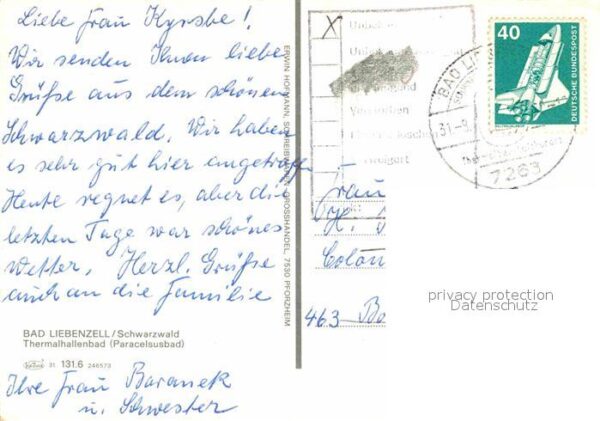 Liebe Frau Kyrsbe!
Wir senden Ihnen liebe
Grüße aus dem schönen
Schwarzwald. Wir haben
es sehr gut hier angetroffen
Heute regnet es, aber die
letzten Tage war schönes
Wetter, Herzl. Grüße
auch an die Familie
BAD LIEBENZELL/Schwarzwald
Thermalhallenbad (Paracelsusbad)
31 131.6 246573
Ihre Frau Baranek
u. Schwester
ERWIN HOFMANN, SCHREIBWAREN-GROSSHANDEL, 7530 PFORZHEIM
X
Verstorben
BAD LI
31.-8.
7263
40
DEUTSCHE BUNDESPOST
Frau
H.
463 Bo
privacy protection
Datenschutz